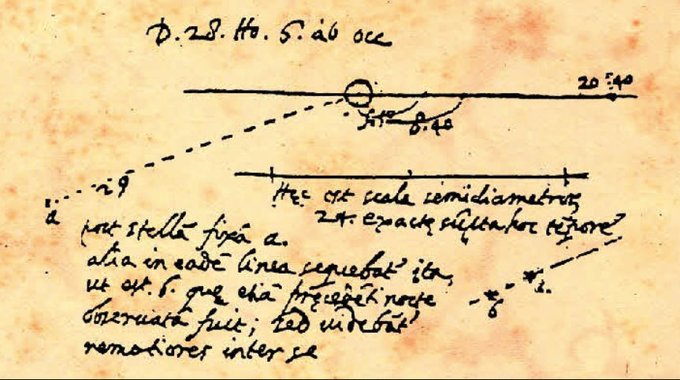 D. 28. Ho. 6. ab occ
20:40
8.40
29
a
Hęc est scala semidiametroꝝ
24. exactę sūpta hoc tēpore
post stellā fixā a.
alia in eadē linea sequebat' ita,
ut est. b. quę etiā pręcedēti nocte
observata fuit; sed videbāt'
remotiores inter se
b a.